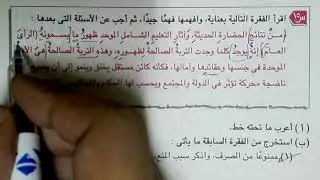 س١٥ اقرأ الفقرة التالية بعناية، وافهمها فهمًا جيدًا، ثم أجب عن الأسئلة التى بعدها :
(من نتائج الحضارة الحديثة، وآثار التعليم الشامل الموحد ظهور ما يسمونه (الرأى
العام) إنه يوجد كلما وجدت التربة الصالحة لظهوره، وهذه التربة الصالحة هى الأمة
الموحدة فى جنسها وعقائدها وآمالها، فكأنه كائن مستقل يخلق وينمو إلى أن يصبح
ناضجة محركة تؤثر فى الدولة والمجتمع ويحسب لها الحكام
(١) أعرب ما تحته خط.
(ب) استخرج من الفقرة السابقة ما يأتى :
(١) ممنوعًا من الصرف، واذكر سبب المنع